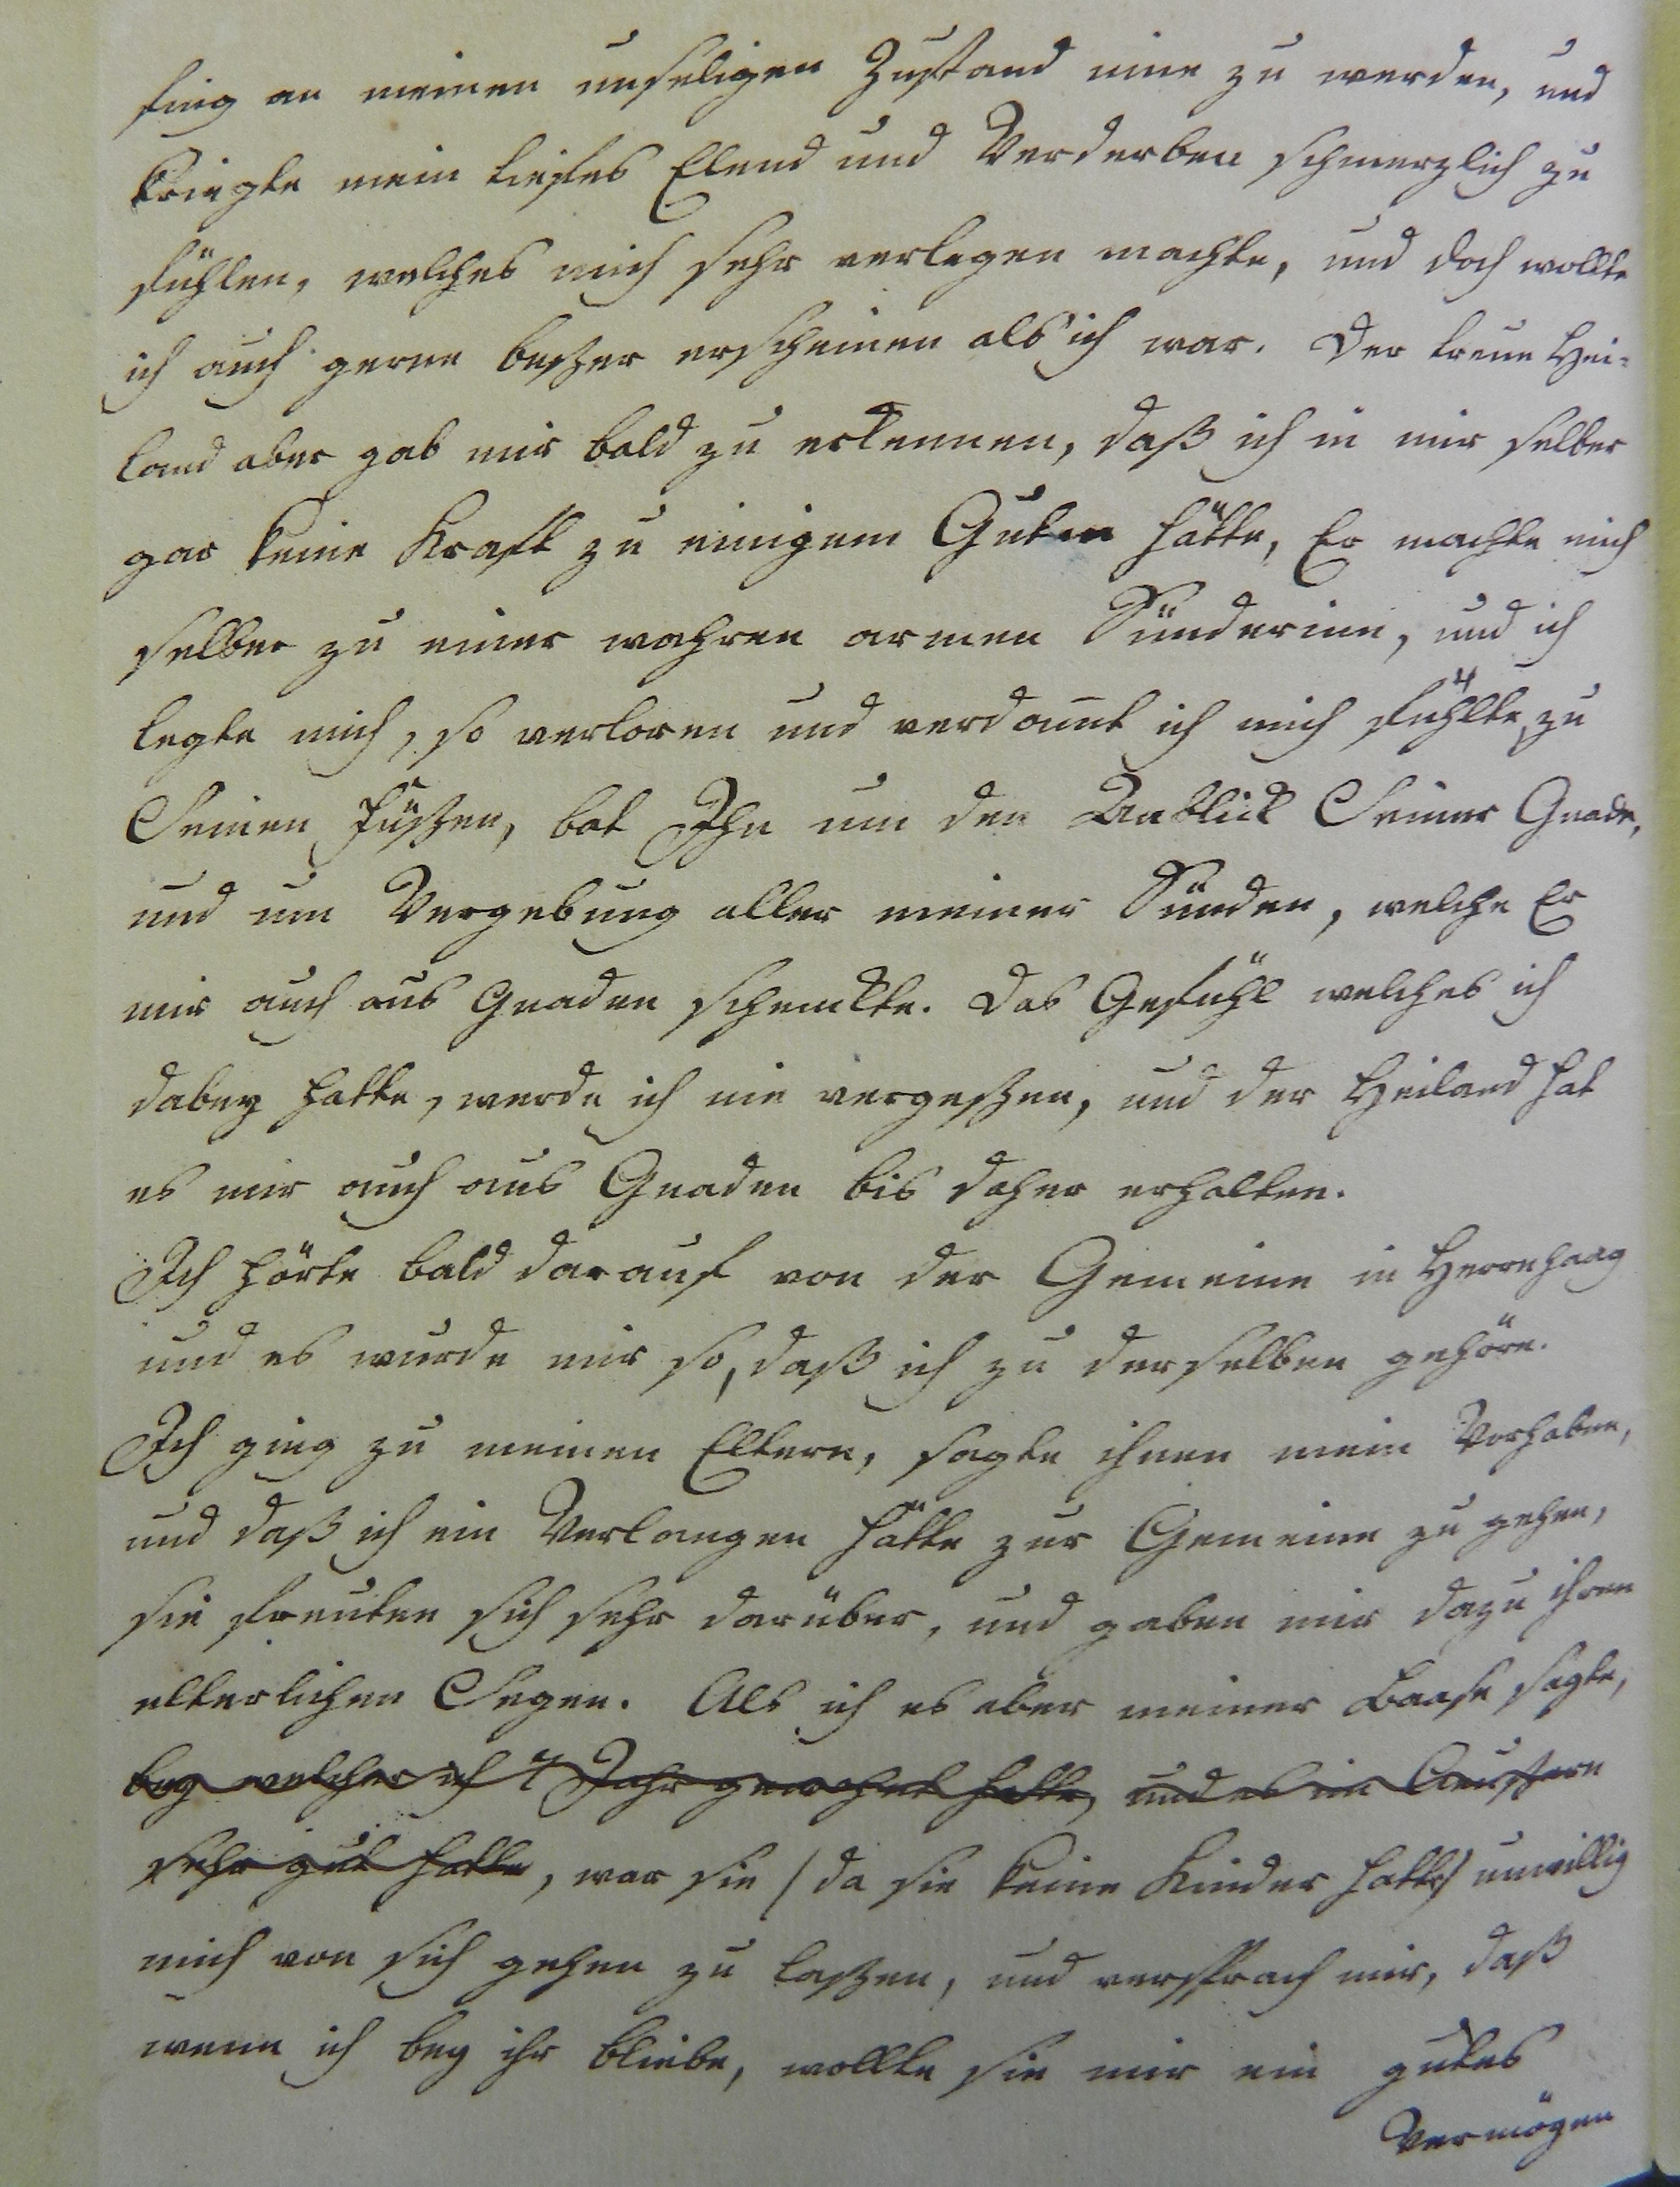 fing an meinen unseligen Zustand inne zu werden, und
kriegte mein tiefes Elend und Verderben schmerzlich zu
fühlen, welches mich sehr verlegen machte, und doch wollte
ich auch gerne beßer erscheinen als ich war. Der treue Hei-
land aber gab mir bald zu erkennen, daß ich in mir selber
gar keine Kraft zu einigem Guten hätte, Er machte mich
selber zu einer wahren armen Sünderinn, und ich
legte mich, so verloren und verdamt ich mich fühlte, zu
Seinen Füßen, bat Ihn um den Anblick Seiner Gnade,
und um Vergebung aller meiner Sünden, welche Er
mir auch aus Gnaden schenckte. Das Gefühl welches ich
dabey hatte, werde ich nie vergeßen, und der Heiland hat
es mir auch aus Gnaden bis daher erhalten.
Ich hörte bald darauf von der Gemeine in Herrnhaag
und es wurde mir so, daß ich zu derselben gehöre.
Ich ging zu meinen Eltern, sagte ihnen mein Vorhaben,
und daß ich ein Verlangen hätte zur Gemeine zu gehen,
sie freuten sich sehr darüber, und gaben mir dazu ihren
elterlichen Segen. Als ich es aber meiner Baase sagte,
bey welcher ich 4 Jahr gewohnet hatte, und es im Aeußern
sehr gut hatte, war sie /da sie keine Kinder hatte/ unwillig
mich von sich gehen zu laßen, und versprach mir, daß
wenn ich bey ihr bliebe, wollte sie mir ein gutes
Vermögen